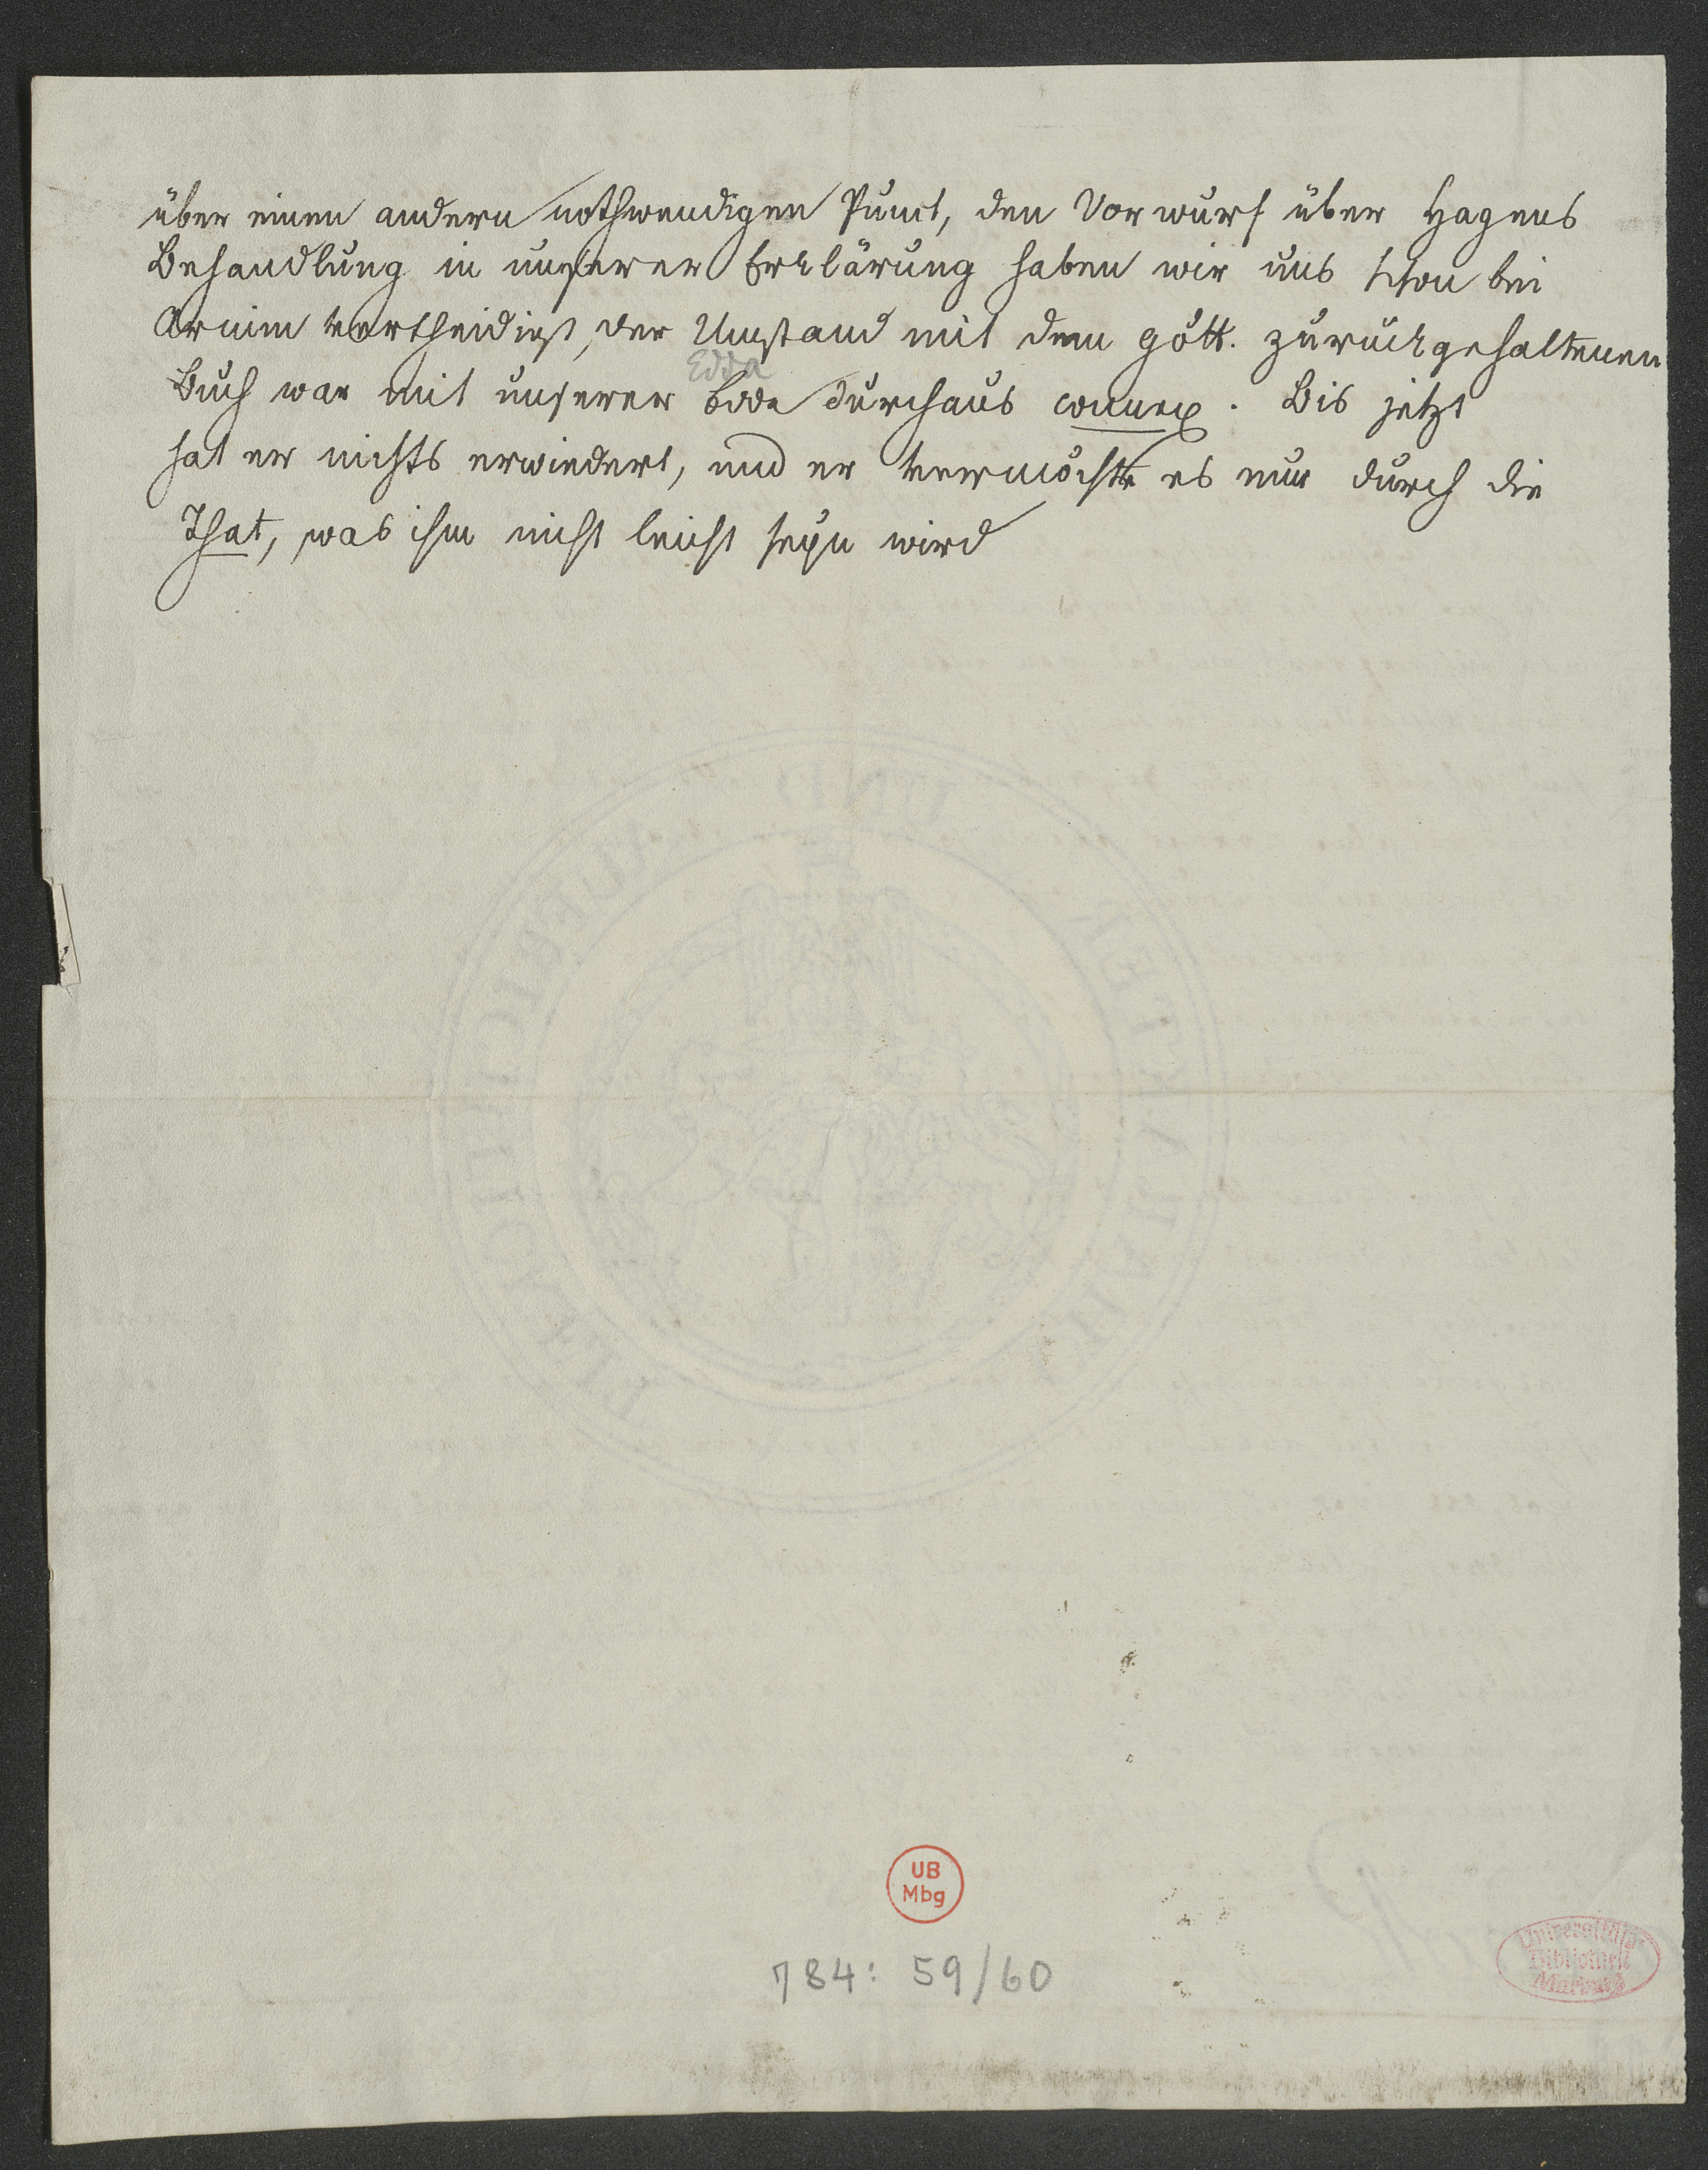 über einen andern nothwendigen Punct, den Vorwurf über Hagens
Behandlung in unserer Erklärung haben wir uns schon bei
Arnim vertheidigt, der Umstand mit dem gött. zurückgehaltenen
Edda
Buch war mit unserer Edda durchaus connex. Bis jetzt
hat er nichts erwiedert, und er vermöchte es nur durch die
That, was ihm nicht leicht seyn wird
UB
Mbg
784: 59/60
Universitäts
Bibliothek
Marburg